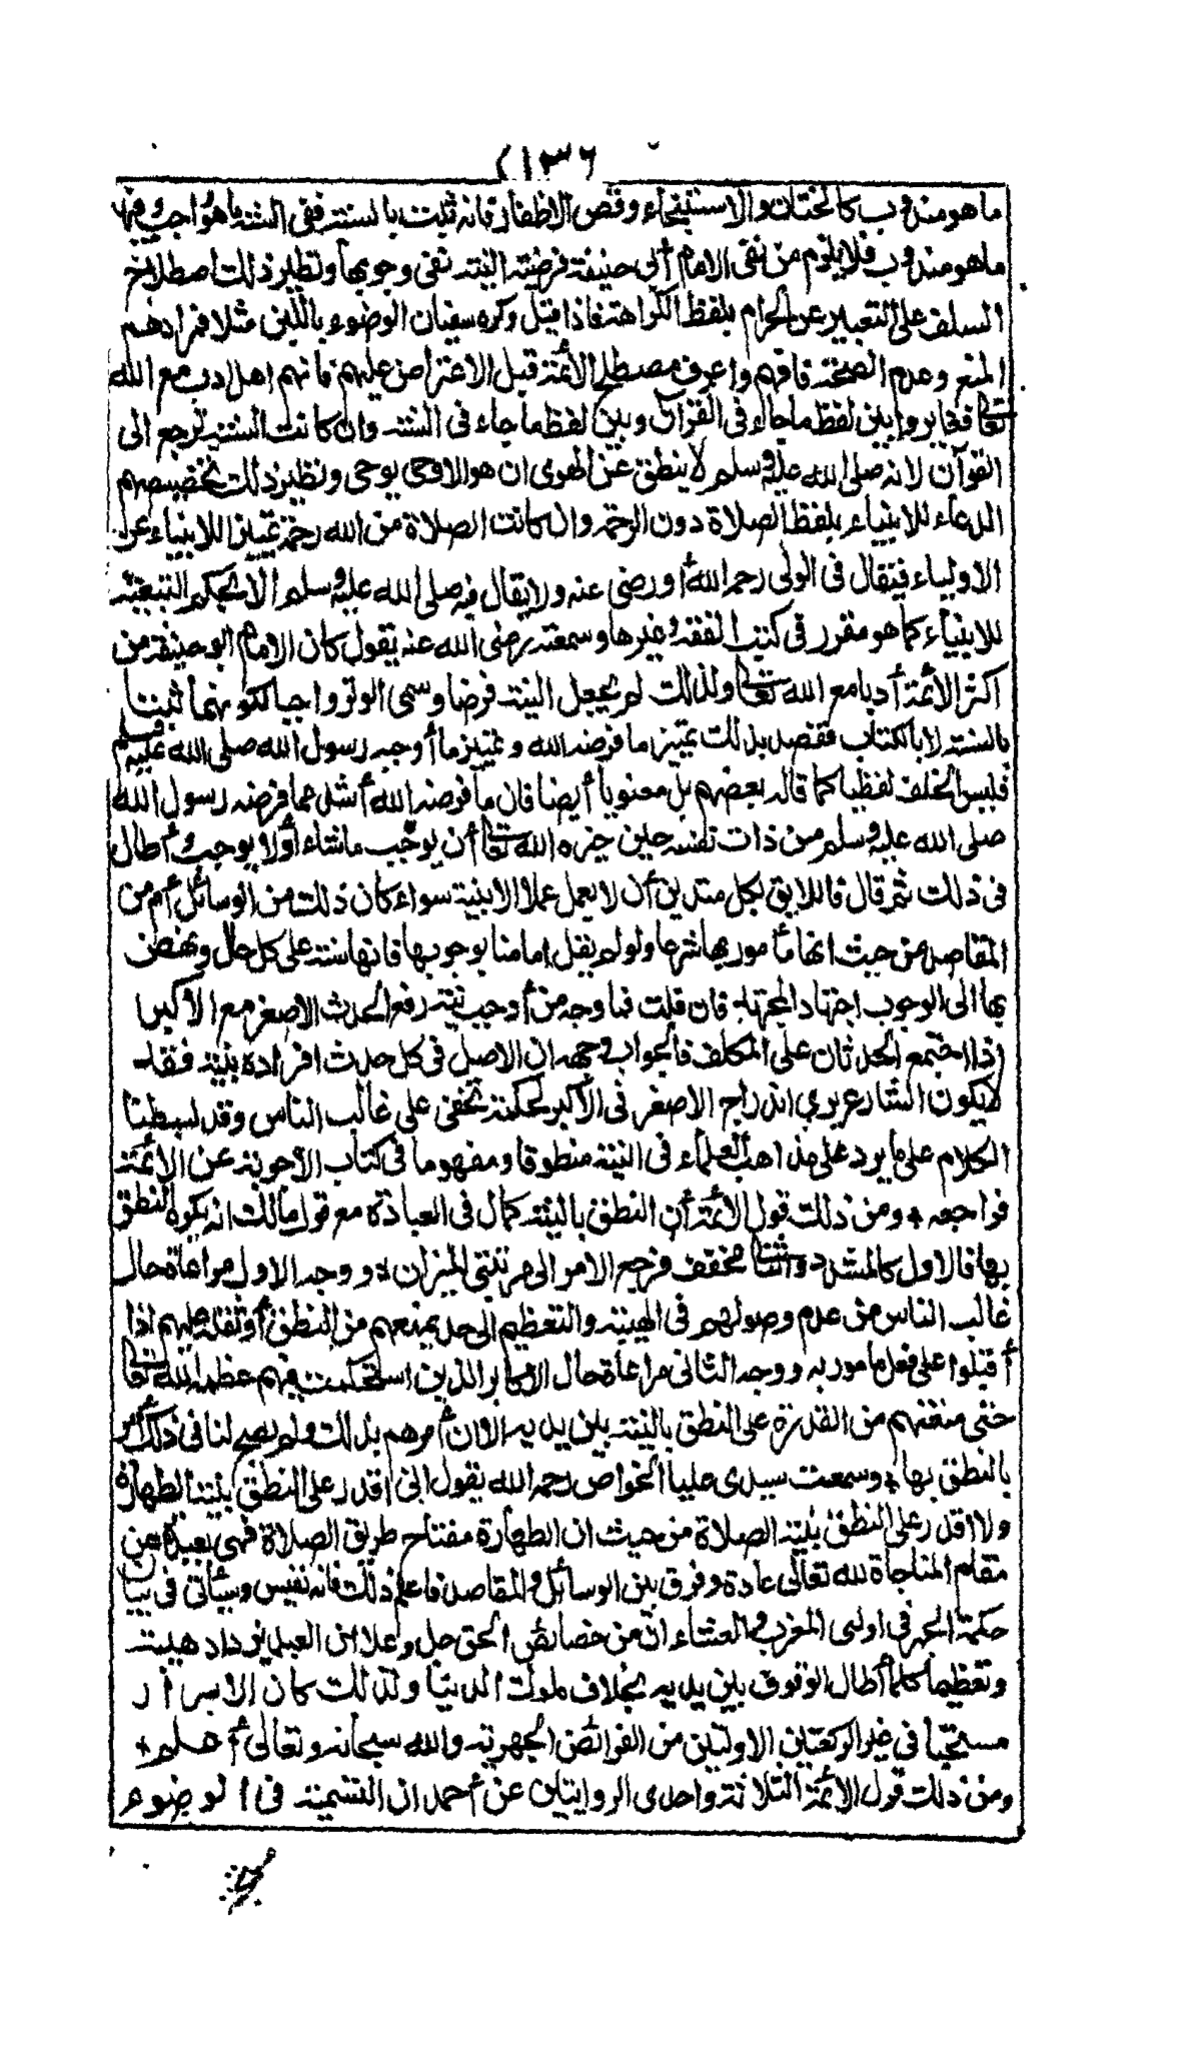 (١٣٦
ما هو مندوب كالختان والاستنجاء وقص الاظفار فانه ثبت بالسنته ففى السنة ما هو واجب وفيها
ما هو مندوب فلا يلزم من نفى الامام أبى حنيفة فرضية النية نفى وجوبها ونظير ذلك اصطلاح
السلف على التعبير عن الحرام بلفظ الكراهة فاذا قيل وكره سفيان الوضوء باللبن مثلا فمرادهم
المنع وعدم الصحة فافهم واعرف مصطلح الأئمة قبل الاعتراض عليهم فانهم اهل ادب مع الله
تعالى فغايروا بين لفظ ما جاء فى القرآن وبين لفظ ما جاء فى السنة وان كانت السنة ترجع الى
القرآن لانه صلى الله عليه وسلم لا ينطق عن الهوى ان هو الا وحى يوحى ونظير ذلك تخصيصهم
الدعاء للانبياء بلفظ الصلاة دون الرحمة وان كانت الصلاة من الله رحمة تمييز للانبياء عن
الاولياء فيقال فى الولى رحمه الله أو رضى عنه ولا يقال فيه صلى الله عليه وسلم الا بحكم التبعية
للانبياء كما هو مقرر فى كتب الفقه وغيرها وسمعته رضى الله عنه يقول كان الامام ابو حنيفة من
اكثر الأئمة أدبا مع الله تعالى ولذلك لم يجعل النية فرضا وسمى الوتر واجبا لكونهما ثبتتا
بالسنة لا بالكتاب فقصد بذلك تمييز ما فرضه الله وتمييز ما أوجبه رسول الله صلى الله عليه وسلم
فليس الخلف لفظيا كما قاله بعضهم بل معنويا أيضا فان ما فرضه الله أشد مما فرضه رسول الله
صلى الله عليه وسلم من ذات نفسه حين خيره الله تعالى أن يوجب ما شاء أو لا يوجب وأطال
فى ذلك ثم قال فاللايق بكل متدين أن لا يعمل عملا الا بنية سواء كان ذلك من الوسائل أم من
المقاصد من حيث انها مأمور بها شرعا ولو لم يقل امامنا بوجوبها فانها سنة على كل حال ونهض
بها الى الوجوب اجتهاد المجتهد فان قلت فما وجه من أوجب نية رفع الحدث الاصغر مع الاكبر
اذا اجتمع الحدثان على المكلف فالجواب وجهه ان الاصل فى كل حدث افراده بنية فقد
لا يكون الشارع يرى اندراج الاصغر فى الأكبر لحكمة تخفى على غالب الناس وقد بسطنا
الكلام على ما يرد على مذاهب العلماء فى النية منطوقا ومفهوما فى كتاب الأجوبة عن الائمة
فراجعه * ومن ذلك قول الأئمة أن النطق بالنية كمال فى العبادة مع قول مالك انه يكره النطق
بها فالاول كالمشدد والثانى مخفف فرجع الامر الى مرتبتى الميزان * ووجه الاول مراعاة حال
غالب الناس من عدم وصولهم فى الهيبة والتعظيم الى حد يمنعهم من النطق أو ثقله عليهم اذا
أقبلوا على فعل مامور به ووجه الثانى مراعاة حال الاكابر الذين استحكمت فيهم عظمة الله تعالى
حتى منعتهم من القدرة على النطق بالنية بين يديه الا ان أمرهم بذلك ولم يصح لنا فى ذلك أمر
بالنطق بها * وسمعت سيدى عليا الخواص رحمه الله يقول انى اقدر على النطق بنية الطهارة
ولا اقدر على النطق بنية الصلاة من حيث ان الطهارة مفتاح طريق الصلاة فهى بعيدة عن
مقام المناجاة لله تعالى عادة وفرق بين الوسائل والمقاصد فاعلم ذلك فانه نفيس وسيأتى فى بيان
حكمة الجهر فى اولى المغرب والعشاء ان من خصائص الحق جل وعلا ان العبد يزداد هيبة
وتعظيما كلما أطال الوقوف بين يديه بخلاف ملوك الدنيا ولذلك كان الاسرار
مستحبا فى غير الركعتين الاوليين من الفرائض الجهرية والله سبحانه وتعالى أعلم *
ومن ذلك قول الأئمة الثلاثة واحدى الروايتين عن أحمد ان التسمية فى الوضوء